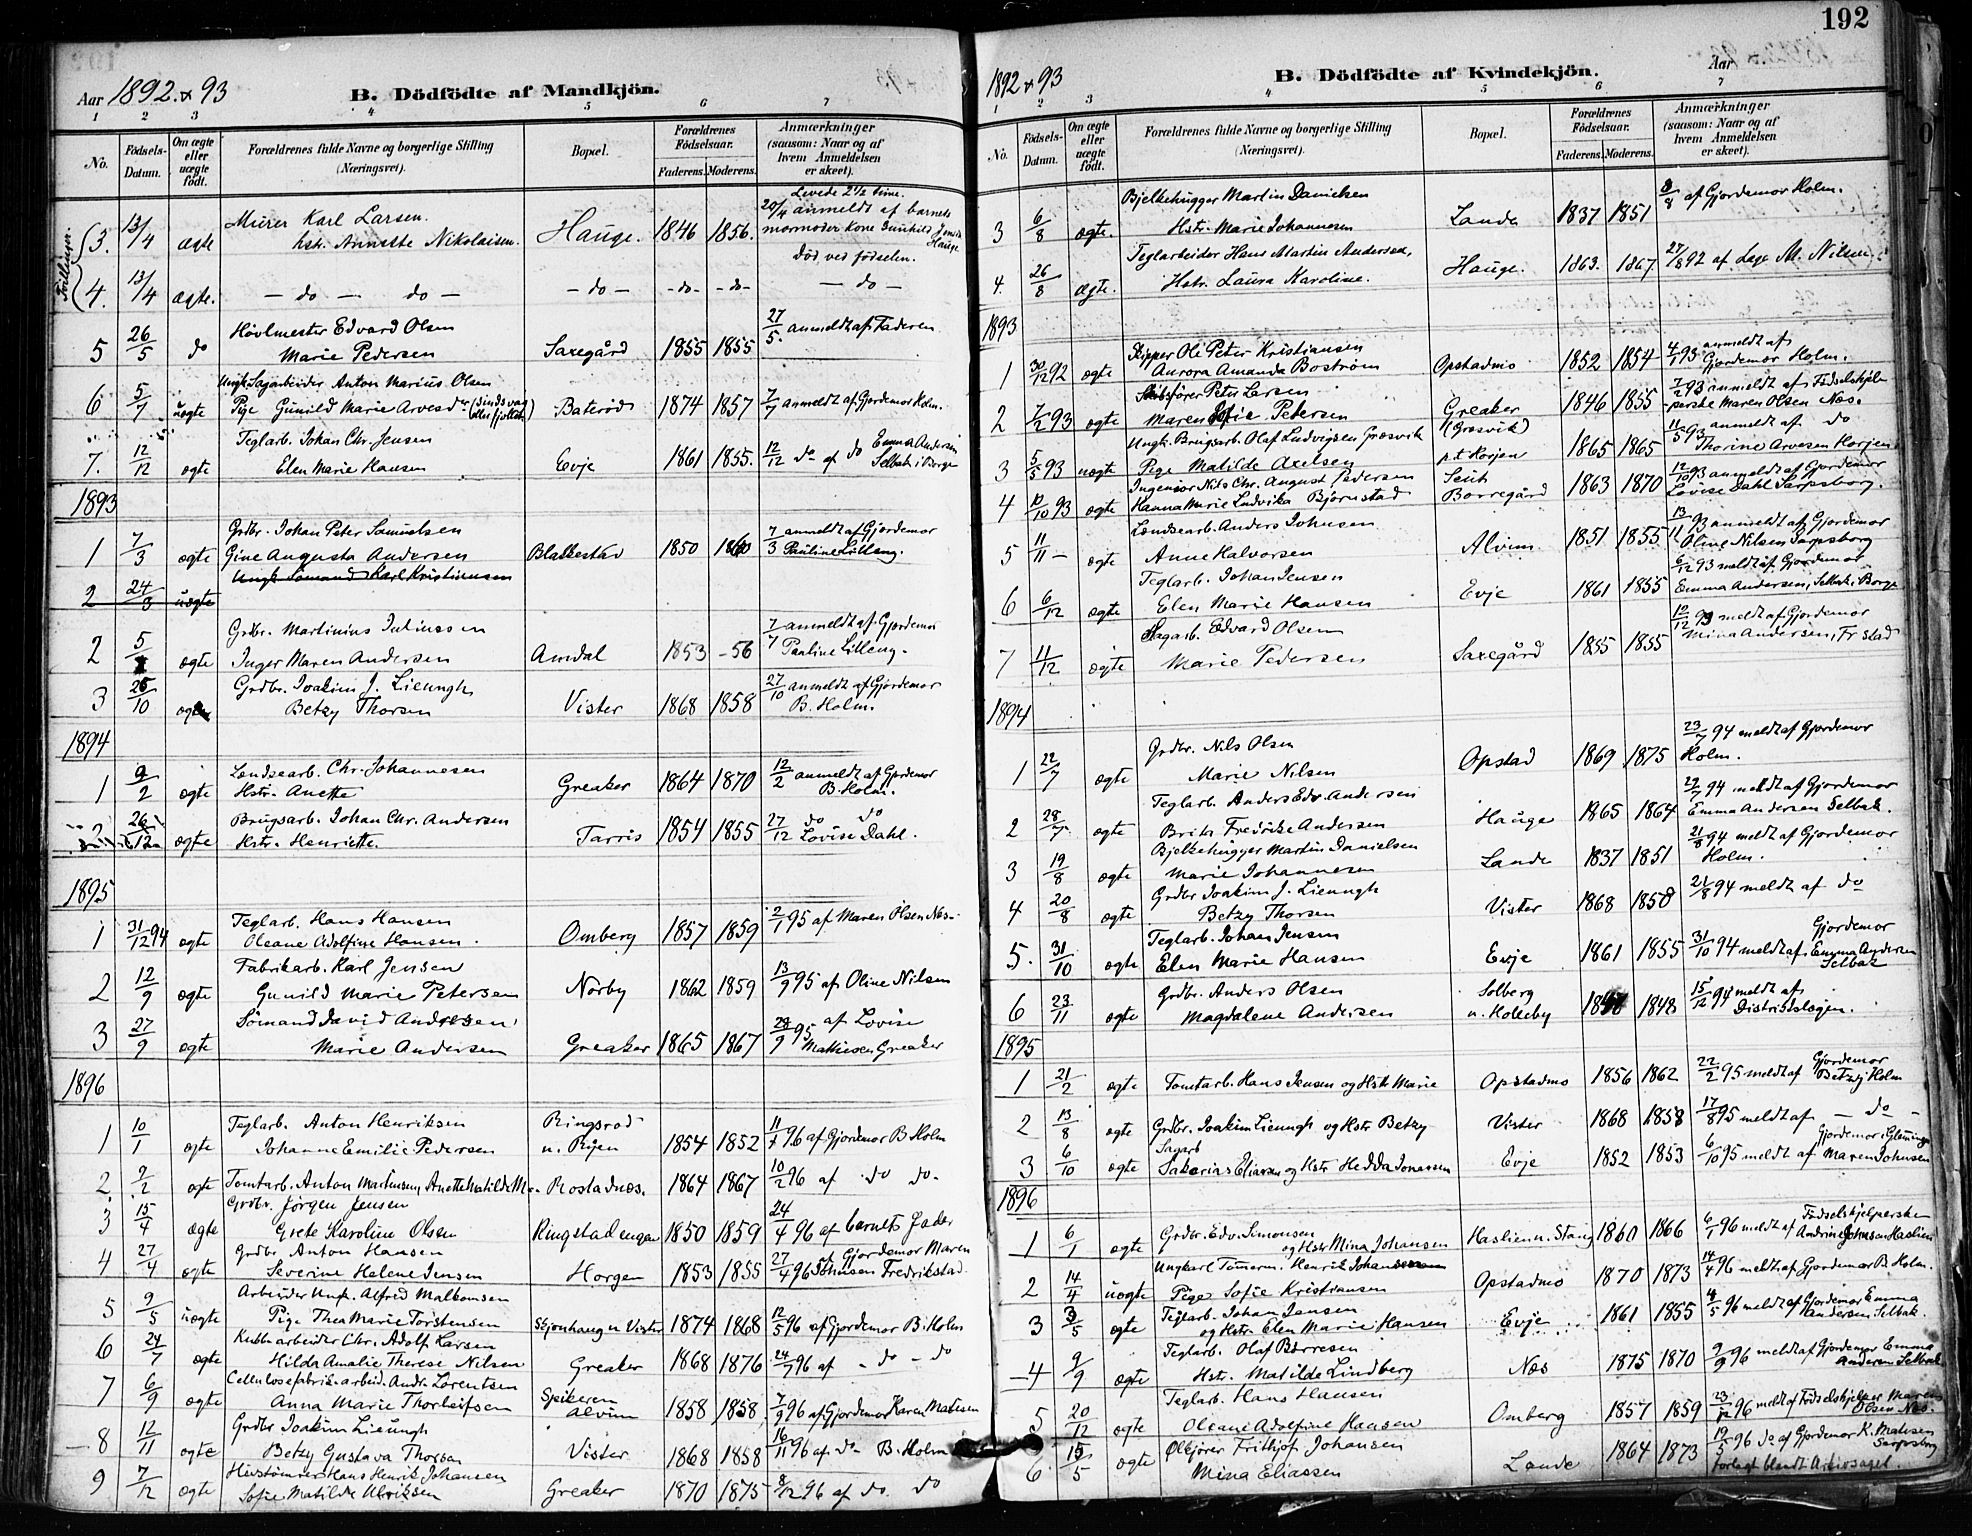 192
Aar 1892 & 93
B. Dödfödte af Mandkjön.
1 2 3 4 5 6 7
No. Födsels-Datum. Om ægte eller uægte födt. Forældrenes fulde Navne og borgerlige Stilling (Næringsvei). Bopæl. Forældrenes Födselsaar. Faderens. Moderens. Anmærkninger (saasom: Naar og af hvem Anmeldelsen er skeet).
Tvillinger.
Levede 2 1/2 time.
3. 13/4 ægte Murer Karl Larsen. Hauge. 1846 1856. 20/4 anmeldt af barnets
hstr. Annette Nikolaisen. mormoder kone Gunhild
Hauge
død ved fødselen.
4. 13/4 ægte. — do — do — — do — - do - - do - — do —
5 26/5 do Høvlmester Edvard Olsen Saxegård 1855 1855 27/5. anmeldt af Faderen
Marie Pedersen
6 5/7 uægte Ungk. Sagarbeider Anton Marius Olsen
Pige Gunild Marie Arvesdr (sindsvag eller fjollet) Baterød 1874 1857 7/7 anmeldt af Gjordemor Holm.
7. 12/12 ægte Teglarb. Johan Chr. Jensen Evje 1861 1855. 12/12 do af do Emma Andersen
Elen Marie Hansen Selbak i Borge
1893
1 7/3 ægte Grdbr. Johan Peter Samuelsen
Gine Augusta Andersen Blakkestav 1850 1860 7/3 anmeldt af Gjordemor Pauline Lilleng.
2 24/3 uægte Ungk. Sømand Karl Kristiansen
2 5/7 ægte Grdbr. Martinius Juliussen
Inger Maren Andersen Amdal 1853 -56 7/7 anmeldt af Gjordemor Pauline Lilleng.
3 26/10 ægte Grdbr. Joakim J. Lieungh
Betzy Thorsen Vister 1868 1858 27/10 anmeldt af Gjordemor B. Holm.
1894
1 9/2 ægte Lendsearb. Chr. Johannesen
Hstr. Anette Greaker 1864 1870 12/2 anmeldt af Gjordemor B. Holm.
2 26/12 ægte Brugsarb. Johan Chr. Andersen
Hstr. Henriette. Tarris 1854 1855 27/12 do do Lovise Dahl.
1895
1 31/12 94 ægte Teglarb. Hans Hansen
Oleane Adolfine Hansen. Omberg 1857 1859 2/1 95 af Maren Olsen Næs.
2 12/9 ægte Fabrikarb. Karl Jensen
Gunild Marie Petersen Nørby 1862 1859 13/9 95 af Oline Nilsen
3 27/9 ægte Sømand David Andersen
Marie Andersen Greaker 1865 1867 28/9 95 af Lovise Mathisen Greaker
1896
1 10/1 ægte Teglarb. Anton Henriksen
Johanne Emilie Pedersen Ringsrød u. Rijen 1854 1852 11/1 96 af Gjordemor B. Holm
2 2/2 ægte Tomtarb. Anton Martinsen, Anette Matilde M. Rostadnæs. 1864 1867 10/2 96 af do do.
3 15/4 ægte Grdbr. Jörgen Jensen
Grete Karoline Olsen Ringstad 1850 1859 24/4 96 af barnets Fader
4 27/4 ægte Grdbr. Anton Hansen
Severine Helene Jensen Horgen 1853 1855 27/4 96 af Gjordemor Maren Johnsen Fredrikstad
5 9/5 uægte Arbeider Ungk. Alfred Malkomsen
Pige Thea Marie Torstensen Skjonhaug u. Vister 1874 1868 12/5 96 af Gjordemor B. Holm
6 24/7 ægte Chr. Adolf Larsen
Hilda Amalie Therese Nilsen Greaker 1868 1876 24/7 96 af - do - do
7 6/9 ægte Cellulosefabrikarbeid. Andr. Lorentsen
Anna Marie Thorleifsen Speikeren Alvim 1858 1858 7/9 96 af Gjordemor Karen Matisen
8 12/11 ægte Grdbr Joakim Lieungh
Betzy Gustava Thorsen Vister 1868 1858 16/11 96 af do B. Holm
9 7/12 ægte Hans Henrik Johansen
Sofie Matilde Ulriksen Greaker 1870 1875 8/12 96 af do do
1892 & 93
B. Dödfödte af Kvindekjön.
Aar
1 2 3 4 5 6 7
No. Födsels-Datum. Om ægte eller uægte födt. Forældrenes fulde Navne og borgerlige Stilling (Næringsvei). Bopæl. Forældrenes Födselsaar. Faderens. Moderens. Anmærkninger (saasom: Naar og af hvem Anmeldelsen er skeet).
3 6/8 ægte. Bjelkehugger Martin Danielsen
Hstr. Marie Johannesen Lande 1837 1851 9/8 af Gjordemor Holm.
4. 26/8 ægte. Teglarbeider Hans Martin Andersen,
Hstr. Laura Karoline. Hauge. 1863. 1867 27/8 92 af Læge M. Nilsen
1893
1 30/12 92 ægte Skipper Ole Peter Kristiansen
Aurora Amanda Boström Opstadmo 1852 1854 4/1 93 anmeldt af Gjordemor Holm.
2 7/2 93 ægte Skibsfører Peter Larsen
Maren Sofie Petersen Greaker (Græsvik) 1846 1855 7/2 93 anmeldt af Fødselshjelperske Maren Olsen Næs.
3 5/5 93 uægte Ungk. Brugsarb. Olaf Ludvigsen Græsvik
Pige Matilde Axelsen p.t. Horjen 1865 1865 11/5 93 anmeldt af do Thorine Arvesen Horjen
4 10/10 93 ægte Ingeniør Nils Chr. August Pedersen
Hanna Marie Ludvika Bjørnstad Borregård 1863 1870 12/10 93 anmeldt af Gjordemor Lovise Dahl Sarpsborg.
5 11/11 — ægte Lendsearb. Anders Johnsen
Anne Halvorsen Alvim 1851 1855 13/11 93 anmeldt af Gjordemor Oline Nilsen Sarpsborg
6 6/12 ægte Teglarb. Johan Jensen
Elen Marie Hansen Evje 1861 1855 6/12 93 meldt af Gjordemor Emma Andersen, Selbak i Borge
7 11/12 ægte Sagarb. Edvard Olsen
Marie Pedersen Saxegård 1855 1855 12/12 93 meldt af Gjordemor Mina Andersen, Fr.stad
1894
1 22/7 ægte Grdbr. Nils Olsen
Marie Nilsen Opstad 1869 1875 23/7 94 meldt af Gjordemor Holm.
2 28/7 ægte Teglarb. Anders Edv. Andersen
Brite Fredrike Andersen Hauge 1865 1864 94 meldt af Gjordemor Emma Andersen Selbak.
3 19/8 ægte Bjelkehugger Martin Danielsen
Marie Johannesen Lande 1837 1851 21/8 94 meldt af Gjordemor Holm.
4 20/8 ægte Grdbr Joakim J. Lieungh
Betzy Thorsen Vister 1868 1858 21/8 94 meldt af do
5. 31/10 ægte Teglarb. Johan Jensen
Elen Marie Hansen Evje 1861 1855 31/10 94 meldt af Gjordemor Emma Andersen Selbak
6 23/11 ægte Grdbr. Anders Olsen
Magdalene Andersen Solberg u. Kolleby 1848 15/12 94 meldt af Distriktslægen.
1895
1 21/2 ægte Tomtarb. Hans Jensen og Hstr Marie Opstadmo 1856 1862 22/2 95 meldt af Gjordemor Betzy Holm
2 13/8 ægte Grdbr. Joakim Lieungh og Hstr Betzy Vister 1868 1858 17/8 95 meldt af — do —
3 6/10 ægte Sagarb Sakarias Eliassen og Hstr Hedda Jonassen Evje 1852 1853 6/10 95 meldt af Gjordemor i Glemminge Maren Johnsen
1896
1 6/1 ægte Grdbr. Edv. Simonsen
og Hstr Mina Johansen Haslien u. Stang 1860 1866 6/1 96 meldt af Fødselshjelperske Andrine Johnsen Haslien
2 14/4 uægte Ungkarl Tømerm. Henrik Johansen
Pige Sofie Kristiansen Opstadmo 1870 1873 14/4 96 meldt af Gjordemor B. Holm.
3 3/5 ægte Teglarb. Johan Jensen
og Hstr. Elen Marie Hansen Evje 1861 1855 4/5 96 meldt af Gjordemor Emma Andersen Selbak.
4 9/9 ægte Teglarb. Olaf Børresen
Hstr. Matilde Lindberg Næs 1875 1870 9/9 96 meldt af Gjordemor Emma Andersen Selbak
5 20/12 ægte Teglarb. Hans Hansen
Oleane Adolfine Hansen Omberg 1857 1859 23/12 96 meldt af Fødselshjelper Maren Olsen Næs.
6 15/5 ægte Frithjof Johansen
Mina Eliassen Lande 1864 1873 19/5 96 do af Gjordemor K. Matisen Sarpsborg
forlagt blandt